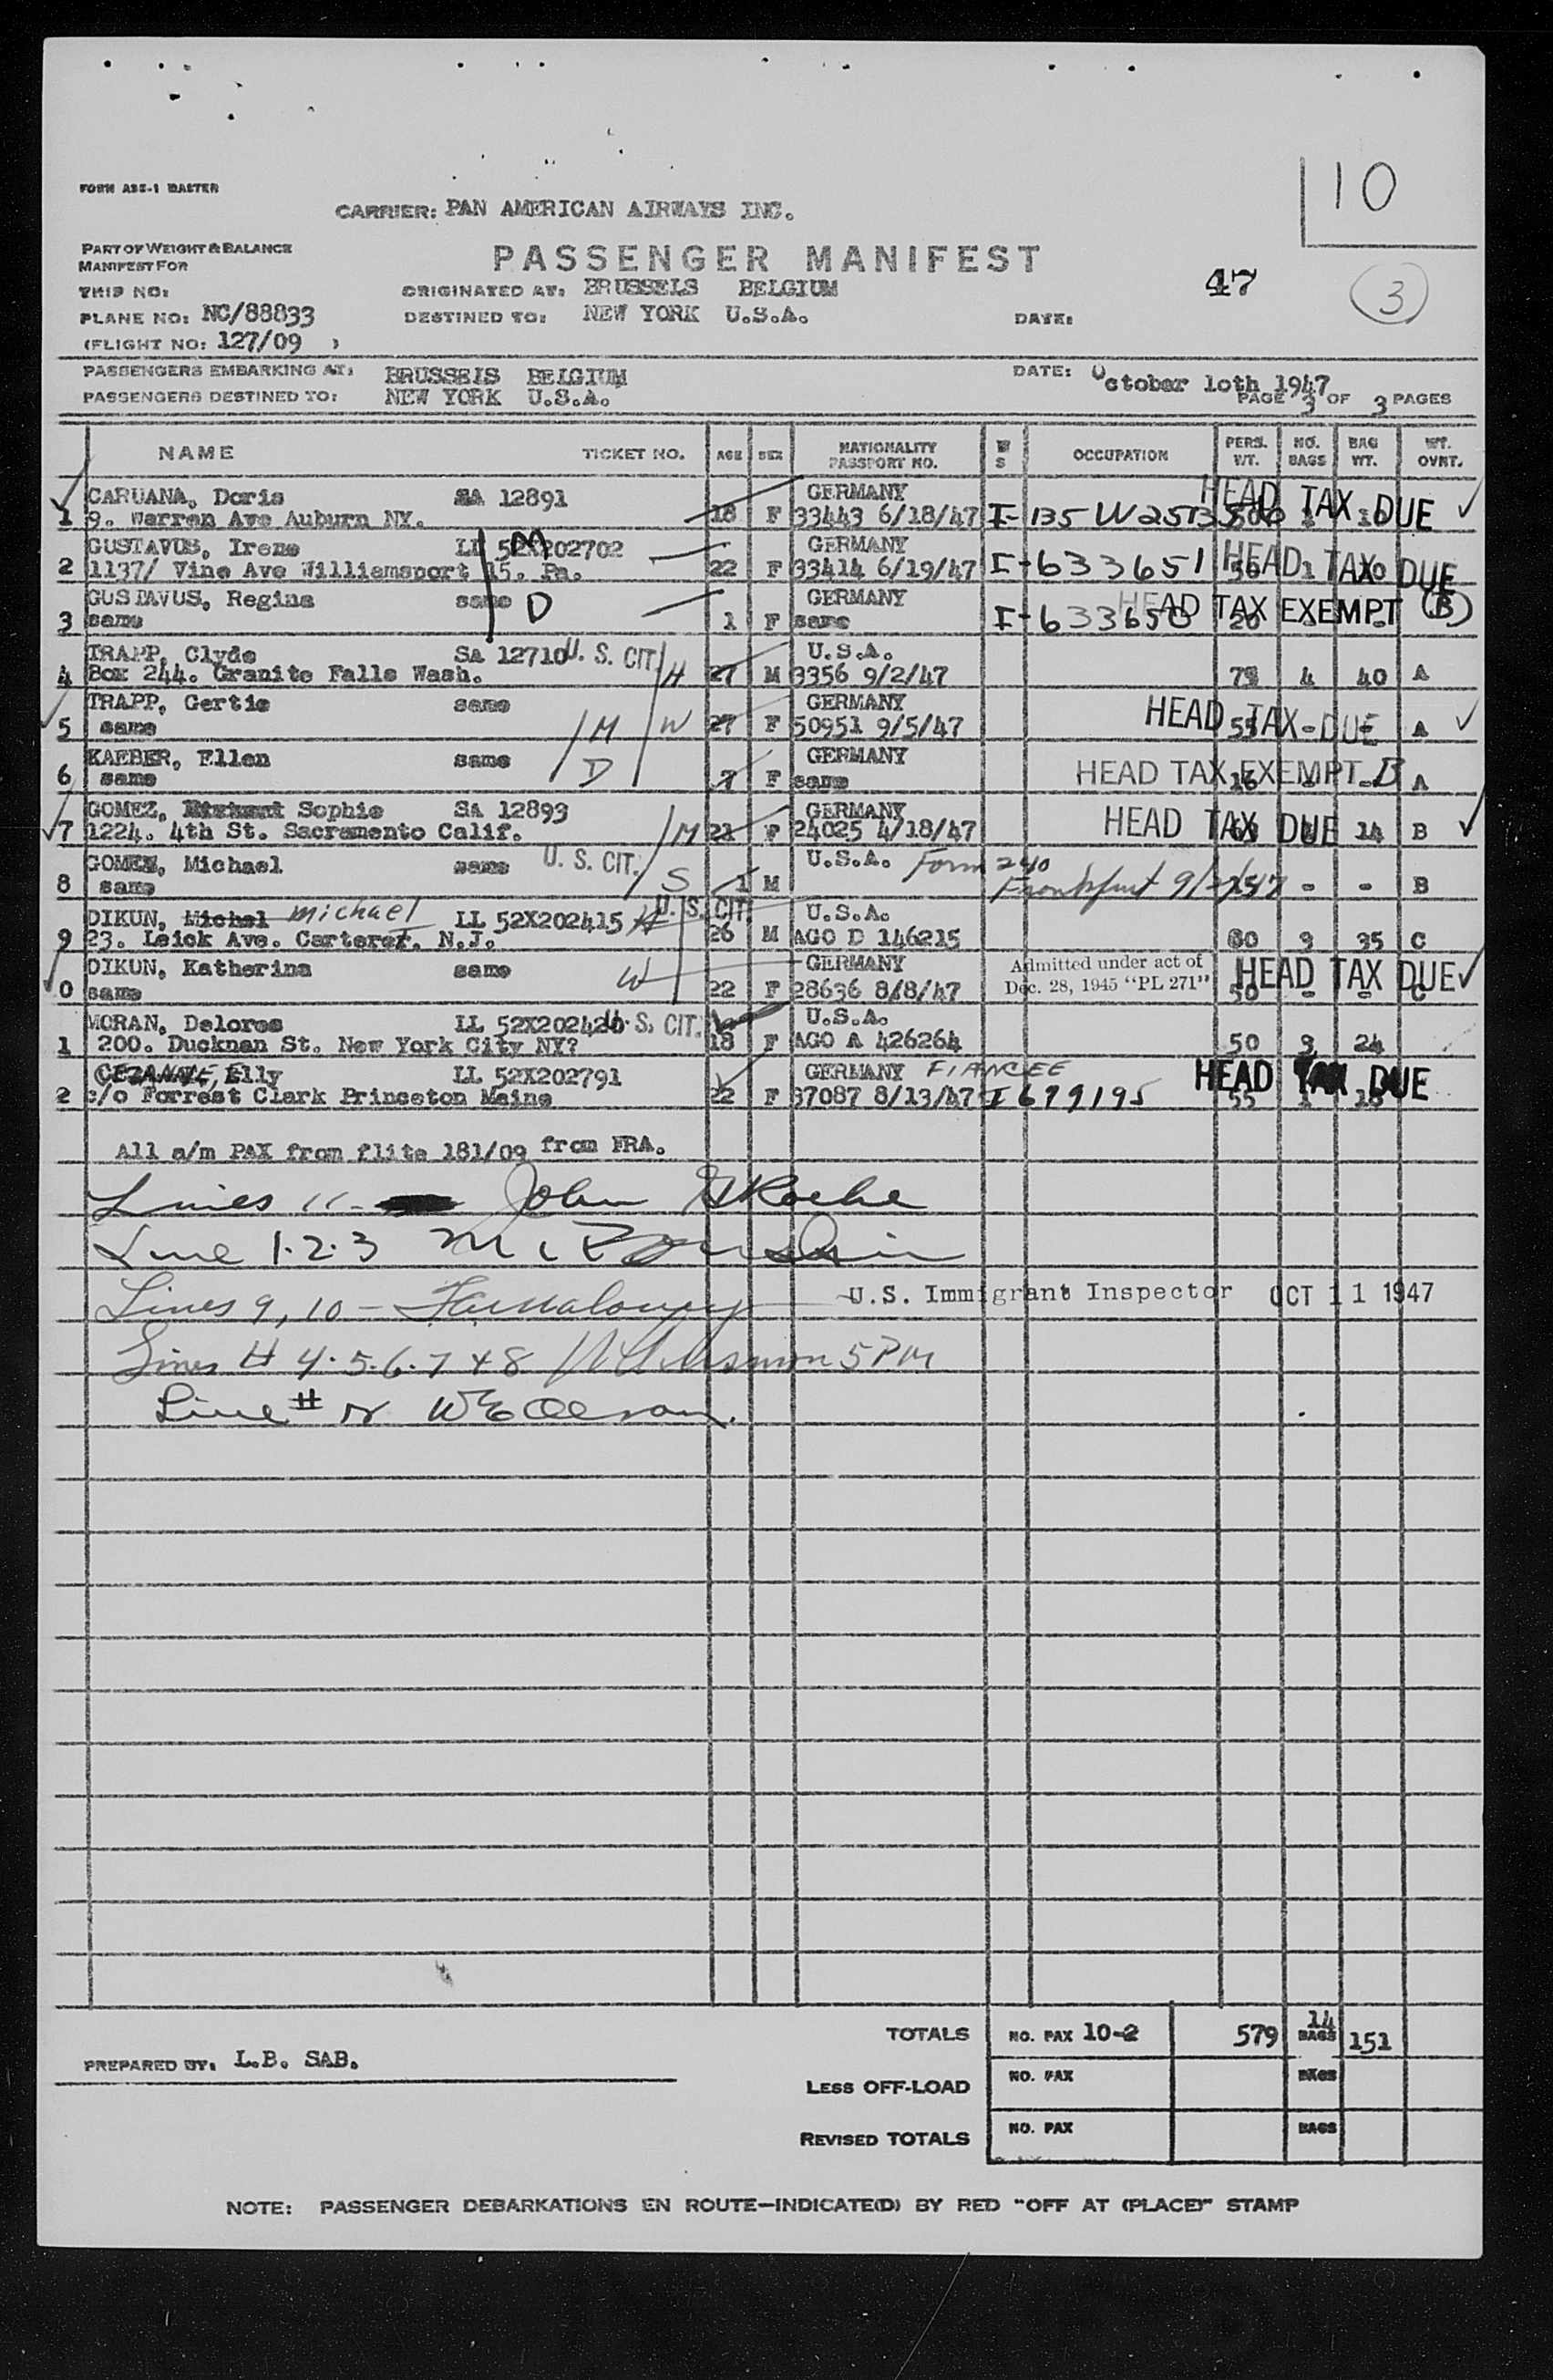 10
FORM ASE-1 MASTER
CARRIER: PAN AMERICAN AIRWAYS INC.
PART OF WEIGHT & BALANCE
MANIFEST FOR
PASSENGER MANIFEST
47
3
TRIP NO:
ORIGINATED AT: BRUSSELS BELGIUM
PLANE NO: NC/88833
DESTINED TO: NEW YORK U.S.A.
DATE:
(FLIGHT NO: 127/09 )
PASSENGERS EMBARKING AT: BRUSSELS BELGIUM
DATE: October 10th 1947
PASSENGERS DESTINED TO: NEW YORK U.S.A.
PAGE 3 OF 3 PAGES
NAME TICKET NO. AGE SEX NATIONALITY PASSPORT NO. OCCUPATION PERS. WT. NO. BAGS BAG WT. WT. OVNT.
CARUANA, Doris SA 12891 GERMANY HEAD TAX DUE
1 9. Warren Ave Auburn NY. 18 F 33443 6/18/47
GUSTAVUS, Irene LL 52X202702 M GERMANY HEAD TAX DUE
2 1137/ Vine Ave Williamsport 15. Pa. 22 F 33414 6/19/47 I-633651
GUSTAVUS, Regina same D GERMANY HEAD TAX EXEMPT (B)
3 same 1 F same I-633650 20 - -
TRAPP, Clyde SA 12710 U. S. CIT. U.S.A.
4 Box 244. Granite Falls Wash. H 27 M 3356 9/2/47 4 40 A
TRAPP, Gertie same GERMANY HEAD TAX DUE
5 same M W 27 F 50951 9/5/47 55 - - A
KAEBER, Ellen same GERMANY HEAD TAX EXEMPT B
6 same D 7 F same 16 - - A
GOMEZ, Sophie SA 12893 GERMANY HEAD TAX DUE
7 1224. 4th St. Sacramento Calif. M 21 F 24025 4/18/47 14 B
GOMEZ, Michael same U. S. CIT. U.S.A. Form 240
8 same S 1 M Frankfurt - - B
DIKUN, Michel Michael LL 52X202415 H U. S. CIT. U.S.A.
9 23. Leick Ave. Carteret. N.J. 26 M AGO D 146215 80 3 35 C
DIKUN, Katherina same W GERMANY Admitted under act of HEAD TAX DUE
0 same 22 F 28636 8/8/47 Dec. 28, 1945 "PL 271" 50 - - C
MORAN, Delores LL 52X202420 U. S. CIT. U.S.A.
1 200. Ducknan St. New York City NY? 18 F AGO A 426264 50 3 24
Elly LL 52X202791 GERMANY FIANCEE HEAD TAX DUE
2 c/o Forrest Clark Princeton Maine 22 F 37087 8/13/47 I 679195 55 1 18
All a/m PAX from flite 181/09 from FRA.
Lines 11- John Roche
Line 1.2.3
Lines 9, 10 - U.S. Immigrant Inspector OCT 11 1947
Lines # 4.5.6.7 + 8 5 PM
Line #
TOTALS NO. PAX 10-2 579 14 BAGS 151
PREPARED BY: L.B. SAB.
LESS OFF-LOAD NO. PAX BAGS
REVISED TOTALS NO. PAX BAGS
NOTE: PASSENGER DEBARKATIONS EN ROUTE—INDICATE(D) BY RED "OFF AT (PLACE)" STAMP